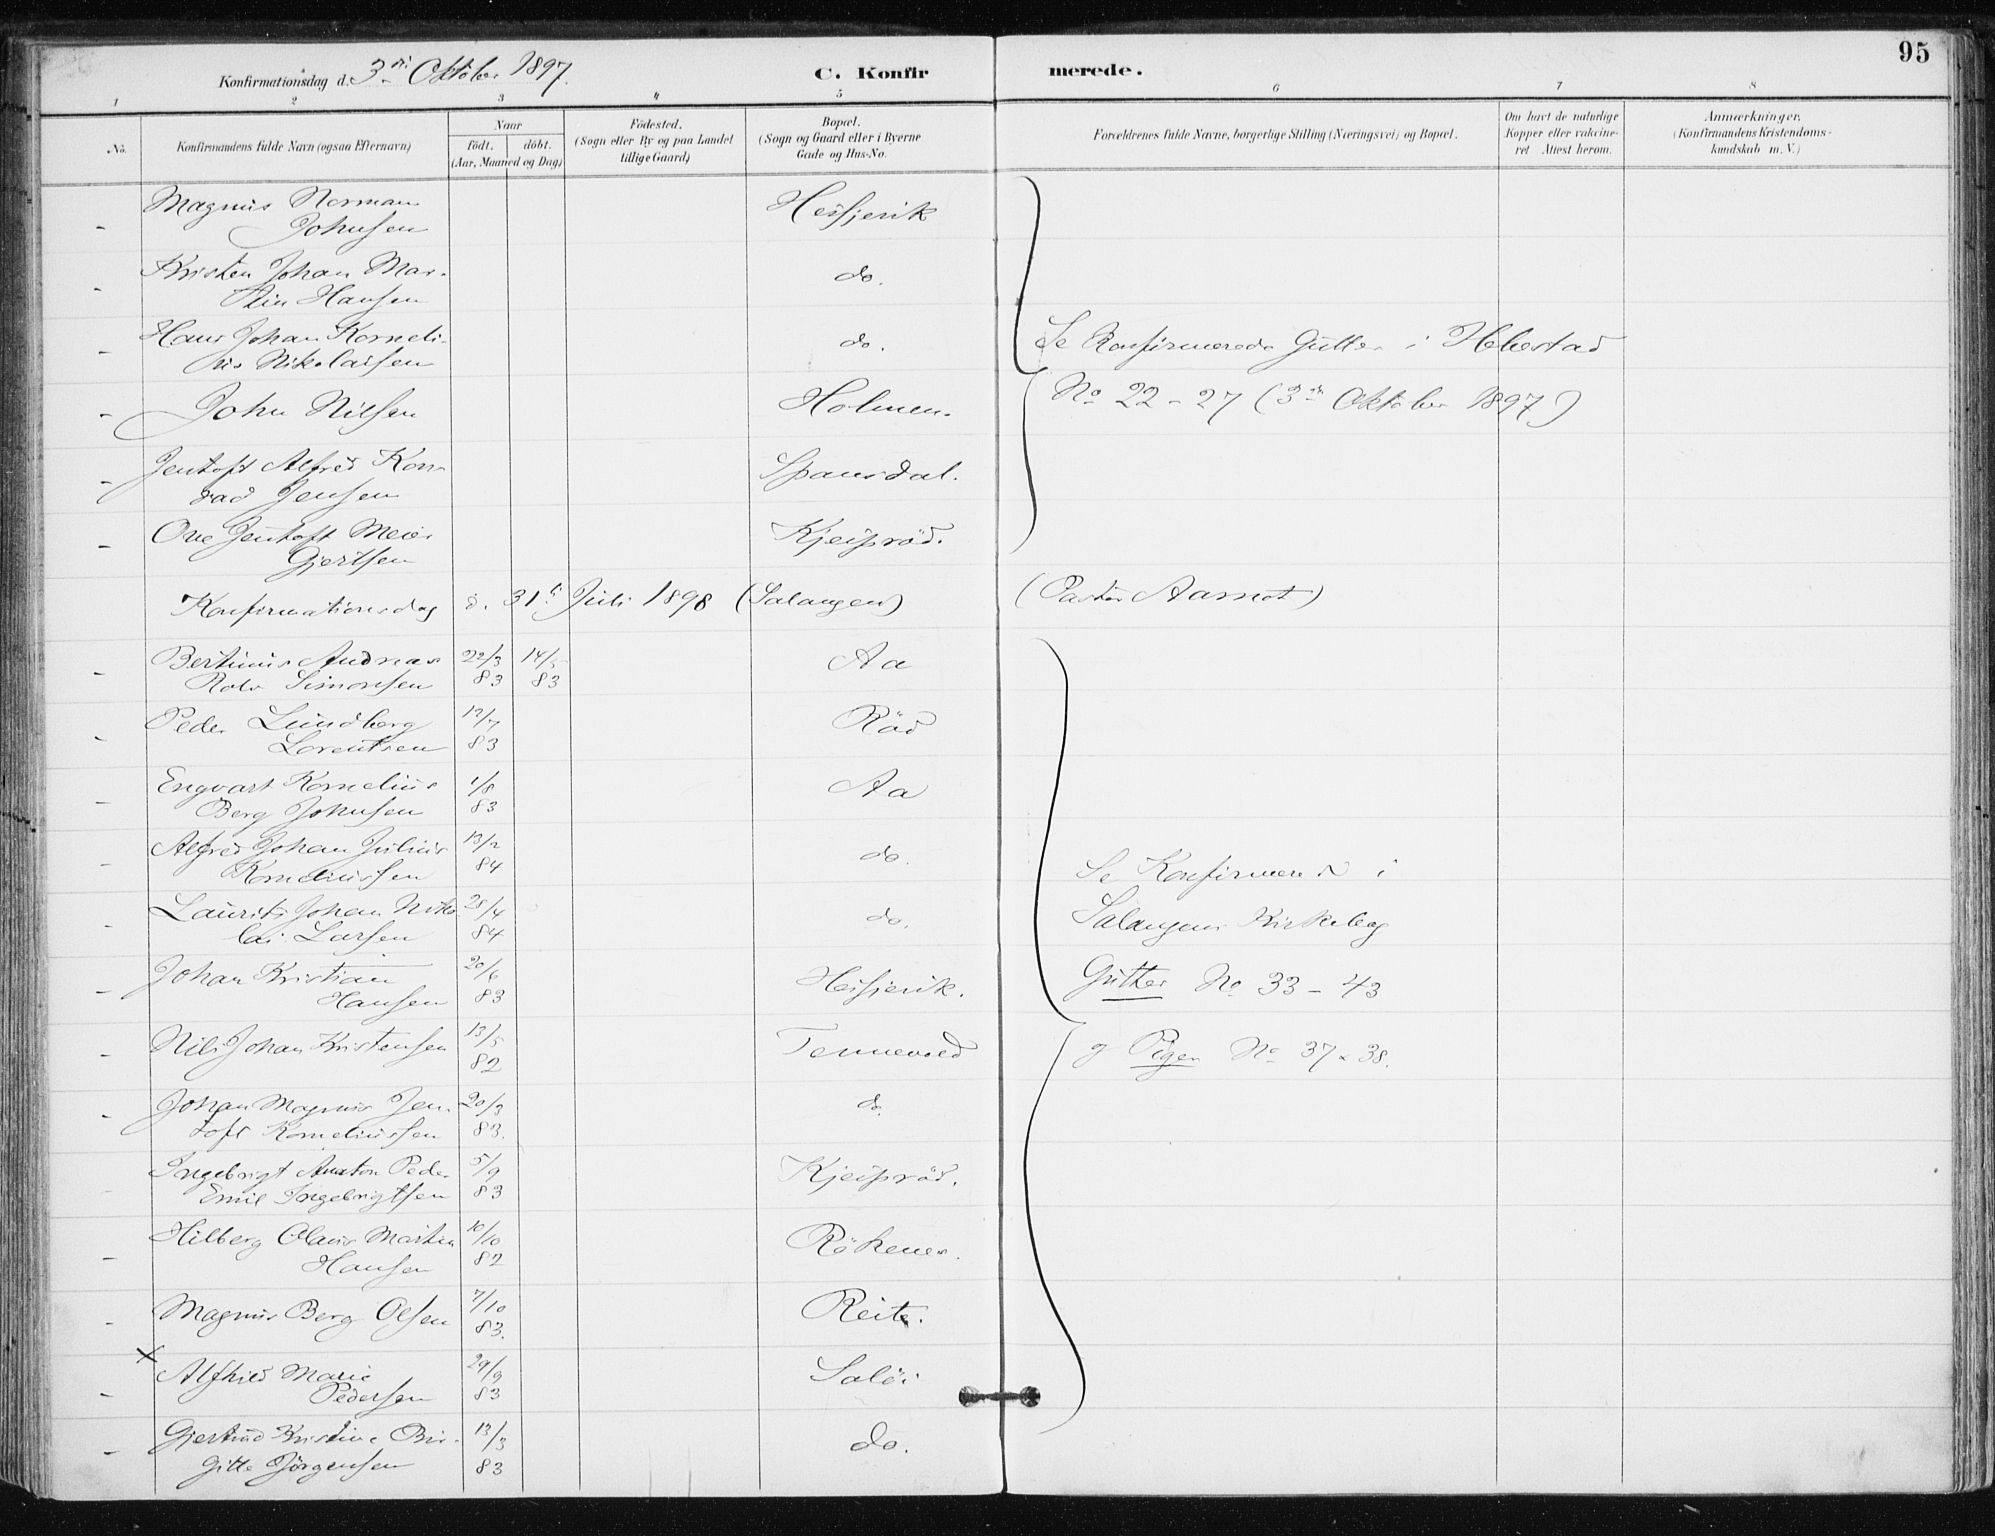 95
Konfirmationsdag d. 3die Oktober 1897.
C. Konfirmerede.
1 2 3 4 5 6 7 8
No.
Konfirmandens fulde Navn (ogsaa Efternavn)
Naar
födt. döbt.
(Aar, Maaned og Dag)
Födested.
(Sogn eller By og paa Landet
tillige Gaard)
Bopæl.
(Sogn og Gaard eller i Byerne
Gade og Hus-No.
Forældrenes fulde Navne, borgerlige Stilling (Næringsvei) og Bopæl.
Om havt de naturlige
Kopper eller vakcine-
ret Attest herom.
Anmærkninger.
(Konfirmandens Kristendoms-
kundskab m. V.)
- Magnus Norman Hessjevik
Johnsen
- Kristen Johan Mar- do.
tin Hansen
- Hans Johan Korneli- do.
us Nikolaisen
Se Konfirmerede Gutter i Ibestad
- John Nilsen Holmen.
No 22 - 27 (3die Oktober 1897)
- Jentoft Alfred Kon- Spansdal.
rad Jensen
- Ove Jentoft Meier Kjeiprød.
Gjertsen
Konfirmationsdag d. 31te Juli 1898 (Salangen) (Pastor Aarnot)
- Bertinus Andreas 22/3 14/5 Aa
Rolv Simonsen 83 83
- Peder Lundberg 12/7 Röd
Lorentsen 83
- Engvart Kornelius 1/8 Aa
Berg Johnsen 83
- Alfred Johan Julius 13/2 do.
Korneliussen 84
Se Konfirmered i
- Laurits Johan Niko- 28/4 do.
lai Larsen 84
Salangens Kirkebog
- Johan Kristian 20/6 Hessjevik.
Hansen 83
Gutter No 33 - 43
- Nils Johan Kristensen 13/5 Tennevold
82
og Piger No 37 & 38.
- Johan Magnus Jen- 20/3 do.
toft Korneliussen 83.
- Ingebrigt Anton Peder 5/9 Kjeiprød.
Emil Ingebrigtsen 83
- Hilberg Olaus Martin 10/10 Rökenes.
Hansen 82
- Magnus Berg Olsen 7/10 Reite.
83.
x
- Alfhild Marie 29/9 Salöi
Pedersen 83
- Gjertrud Kristine Bir- 13/3 do.
gitte Jörgensen 83